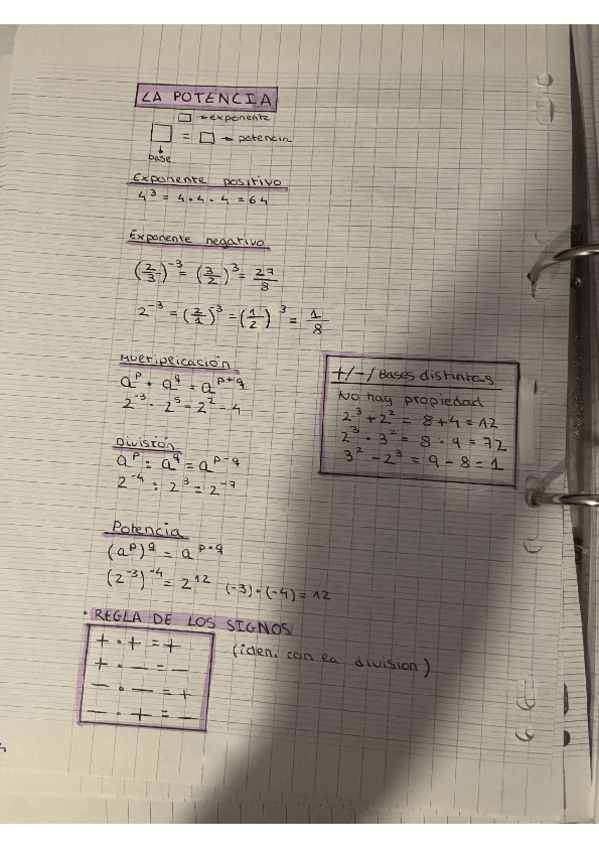 LA POTENCIA
□ → exponente
□ = □ → potencia
↓
base
Exponente positivo
4³ = 4 · 4 · 4 = 64
Exponente negativo
(2/3)⁻³ = (3/2)³ = 27/8
2⁻³ = (2/1)⁻³ = (1/2)³ = 1/8
Multiplicación
aᵖ · a^q = a^(p+q)
2⁻³ · 2⁵ = 2² = 4
División
aᵖ : a^q = a^(p-q)
2⁻⁴ : 2³ = 2⁻⁷
+/-/Bases distintas
No hay propiedad
2³ + 2² = 8 + 4 = 12
2³ · 3² = 8 · 9 = 72
3² - 2³ = 9 - 8 = 1
Potencia
(aᵖ)^q = a^(p·q)
(2⁻³)⁻⁴ = 2¹² (-3) · (-4) = 12
· REGLA DE LOS SIGNOS
+ · + = +
+ · - = -
- · - = +
- · + = -
(iden. con la division)